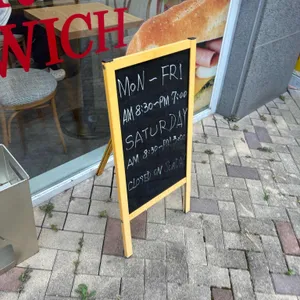 WICH
MON - FRI
AM 8:30-PM 7:00
SATURDAY
AM 8:30-PM
CLOSED ON